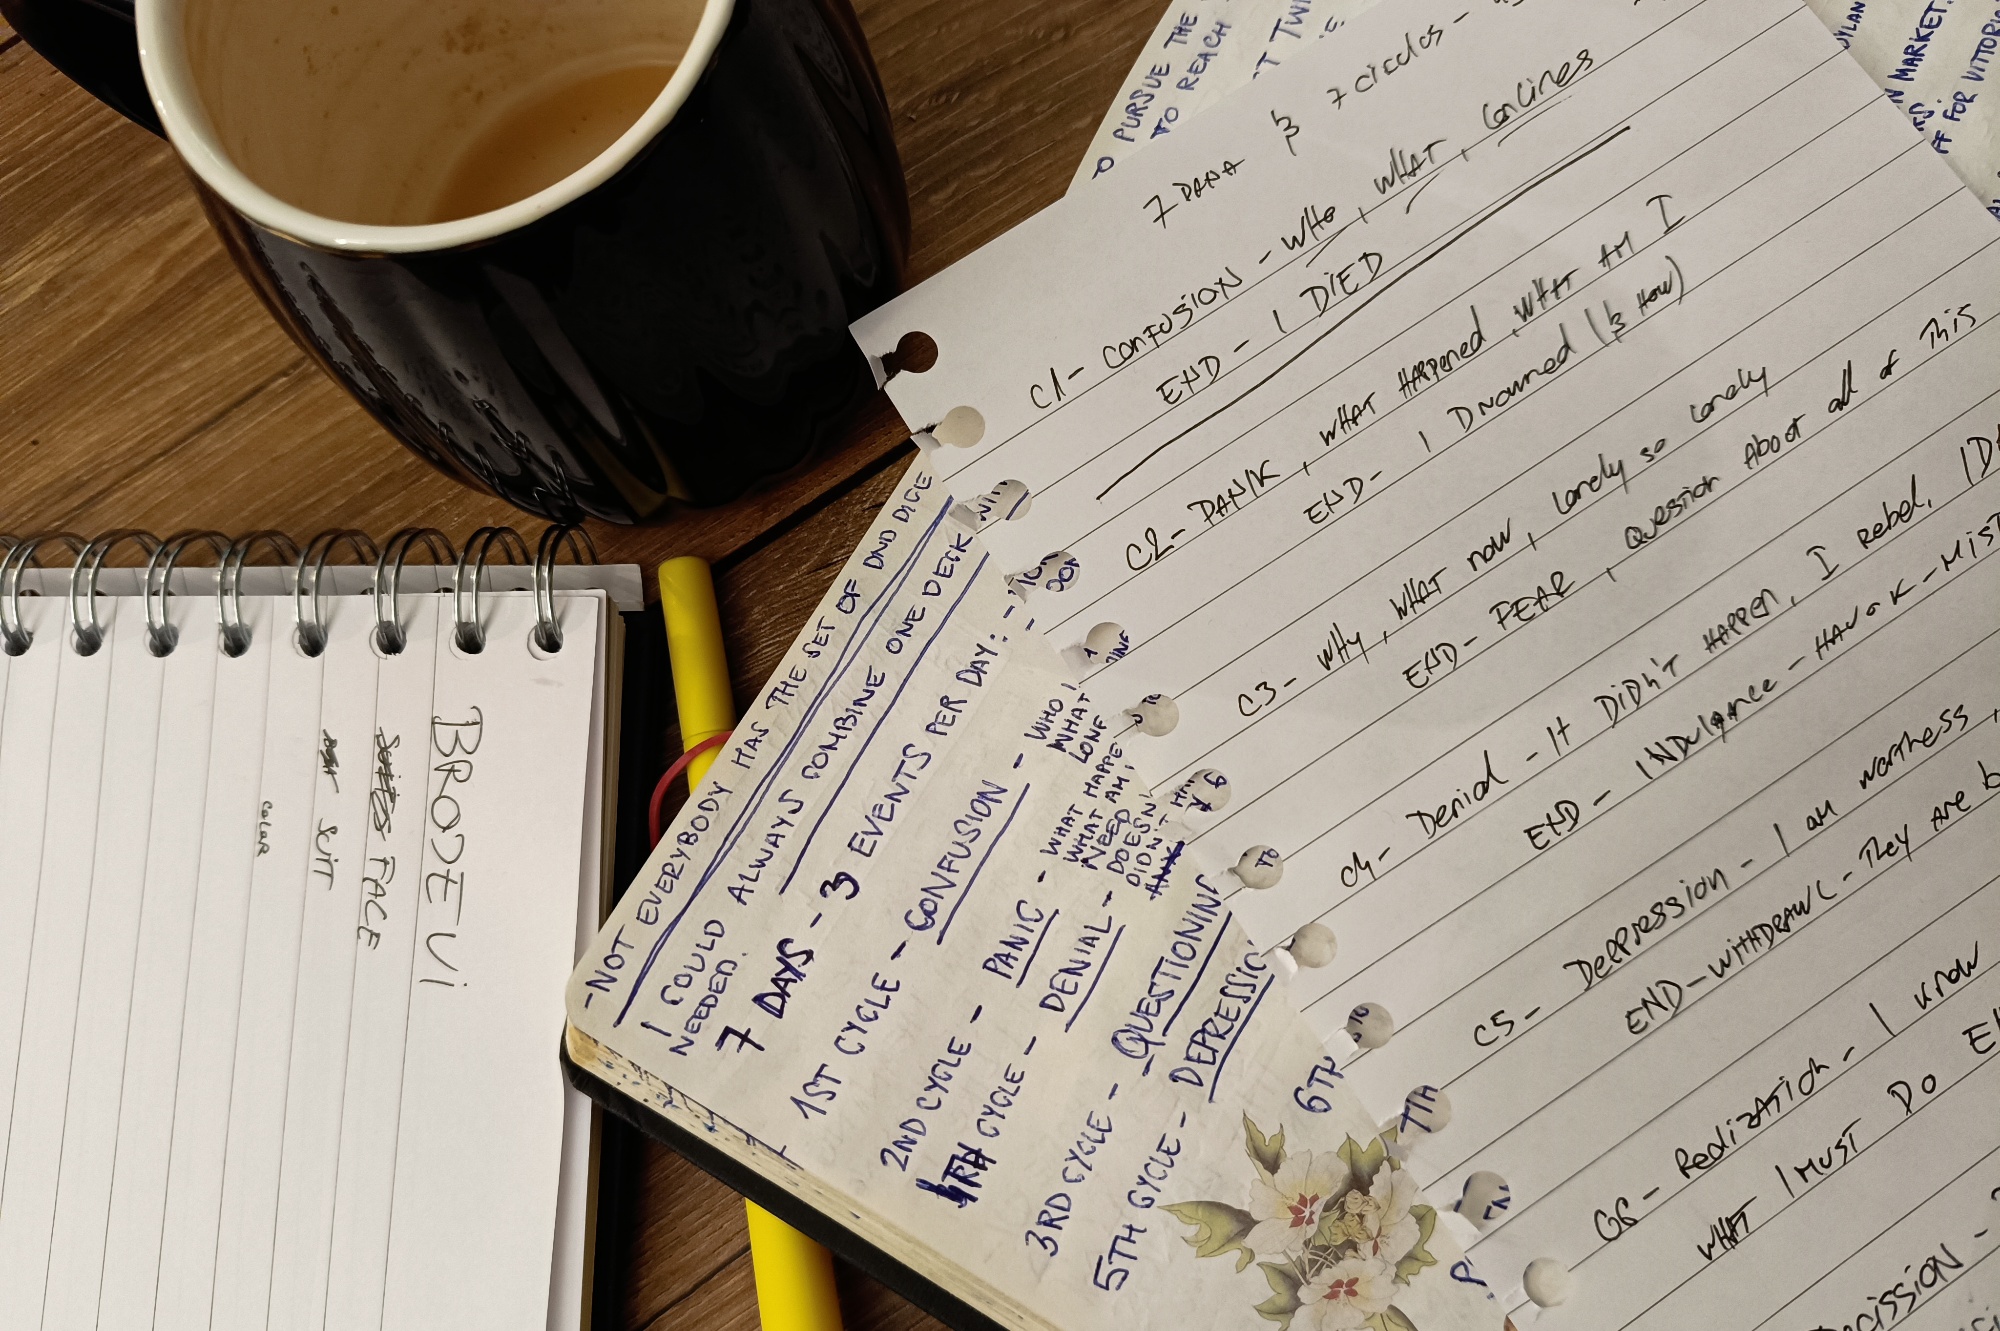 BROJEVI
FACE
SUIT
COLOR
- NOT EVERYBODY HAS THE SET OF DND DICE
I COULD ALWAYS COMBINE ONE DECK
NEEDED.
7 DAYS - 3 EVENTS PER DAY:
1ST CYCLE - CONFUSION - WHO,
WHAT
2ND CYCLE - PANIC - WHAT HAPPE
WHAT AM I
NEED
4TH CYCLE - DENIAL - DOESN'
DIDN'T
3RD CYCLE - QUESTIONING
5TH CYCLE - DEPRESSIO
6TH
7TH
PURSUE THE
TO REACH
MARKET.
FOR VITTORI
7 DANA & 7 circles -
C1 - CONFUSION - WHO, WHAT,
END - I DIED
C2 - PANIK, WHAT HAPPENED, WHAT AM I
END - I Drowned (& HOW)
C3 - WHY, WHAT now, lonely so lonely
END - FEAR, QUESTION ABOUT all of This
C4 - Denial - It DIDN'T HAPPEN, I rebel,
END - INDulgance - HAVOK - MIST
C5 - Deppression - I am worthess,
END - WITHDRAWL - They are b
C6 - RealizATION - I know
WHAT I MUST DO